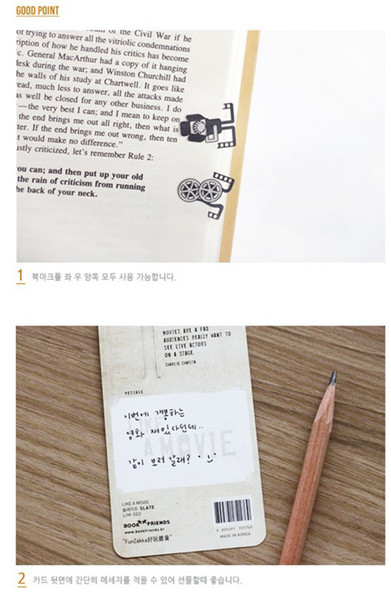 GOOD POINT
of the Civil War if he
of trying to answer all the vitriolic condemnations
ription of how he handled his critics has become
c. General MacArthur had a copy of it hanging
desk during the war; and Winston Churchill had
the walls of his study at Chartwell. It goes like
read, much less to answer, all the attacks made
as well be closed for any other business. I do
—the very best I can; and I mean to keep on
the end brings me out all right, then what is
ter. If the end brings me out wrong, then ten
t would make no difference."
stly criticized, let's remember Rule 2:
ou can; and then put up your old
the rain of criticism from running
he back of your neck.
1 북마크를 좌 우 양쪽 모두 사용 가능합니다.
MOVIES ARE A FAD.
AUDIENCES REALLY WANT TO
SEE LIVE ACTORS
ON A STAGE.
CHARLIE CHAPLIN
MESSAGE
이번에 개봉하는
영화 재밌샤던데..
같이 보러 갈래?
A MOVIE
LIKE A MOVIE
슬레이트 SLATE
LIM-003
BOOK FRIENDS
www.bookfriends.kr
"FunZakka好玩雜貨"
MADE IN KOREA
2 카드 뒷면에 간단히 메세지를 적을 수 있어 선물할때 좋습니다.